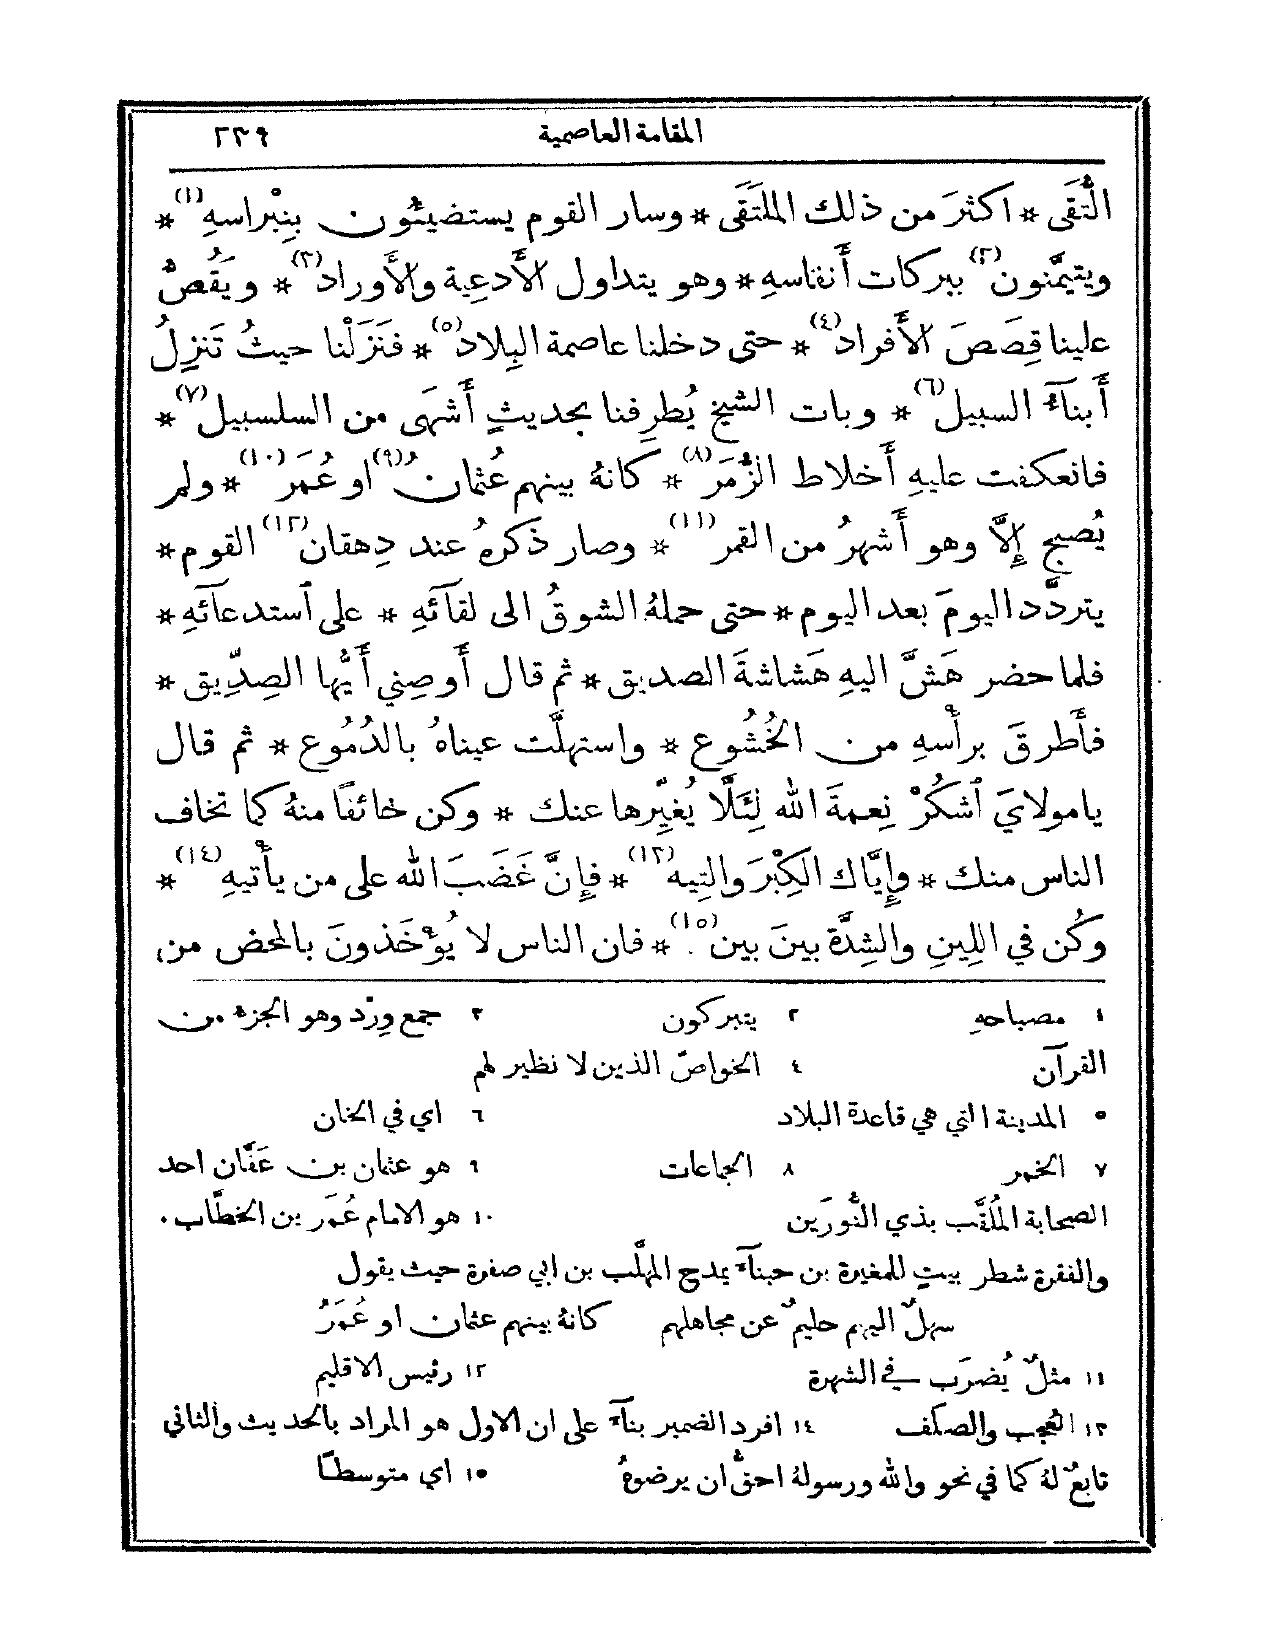 المقامة العاصمية ٢٣٩
التُّقَى * اكثرَ من ذلك المُلتَقَى * وسار القوم يستضيئُون بِنِبْراسهِ(١) *
ويتيمَّنون(٢) ببركات أَنفاسهِ * وهو يتداول الأَدعِية والأَوراد(٣) * ويَقُصُّ
علينا قِصَصَ الأَفراد(٤) * حتى دخلنا عاصمة البِلاد(٥) * فنَزَلْنا حيثُ تَنزِلُ
أَبنآءُ السبيل(٦) * وبات الشيخ يُطرِفنا بحديثٍ أَشهَى من السلسبيل(٧) *
فانعكفت عليهِ أَخلاط الزُّمَر(٨) * كانهُ بينهم عُثمانُ(٩) او عُمَرُ(١٠) * ولم
يُصبِح إِلَّا وهو أَشهرُ من القمر(١١) * وصار ذكرهُ عند دِهقان(١٢) القوم *
يتردَّد اليومَ بعد اليوم * حتى حملهُ الشوقُ الى لقآئهِ * على ٱستدعآئهِ *
فلما حضر هَشَّ اليهِ هَشاشةَ الصديق * ثم قال أَوصِني أَيُّها الصِدِّيق *
فأَطرقَ برأْسهِ من الخُشُوع * واستهلَّت عيناهُ بالدُمُوع * ثم قال
يا مولايَ ٱشكُرْ نِعمةَ الله لِئَلَّا يُغيِّرها عنك * وكن خائفًا منهُ كما تخاف
الناس منك * وإِيَّاك الكِبْرَ والتِيه(١٣) * فإِنَّ غَضَبَ الله على من يأْتيهِ(١٤) *
وكُن في اللِينِ والشِدَّة بينَ بين(١٥) * فان الناس لا يُؤْخَذونَ بالمحض من
١ مصباحهِ ٢ يتبركون ٣ جمع وِرْد وهو الجزء من
القرآن ٤ الخواصّ الذين لا نظير لهم
٥ المدينة التي هي قاعدة البلاد ٦ اي في الخان
٧ الخمر ٨ الجماعات ٩ هو عثمان بن عَفَّان احد
الصحابة المُلقَّب بذي النُّورَين ١٠ هو الامام عُمَر بن الخطَّاب.
والفقرة شطر بيتٍ للمغيرة بن حبنآء يمدح المهلَّب بن ابي صفرة حيث يقول
سهلٌ اليهم حليمٌ عن مجاهلهم كانهُ بينهم عثمان او عُمَرُ
١١ مثلٌ يُضرَب في الشهرة ١٢ رئيس الاقليم
١٣ العُجب والصلَف ١٤ افرد الضمير بنآءً على ان الاول هو المراد بالحديث والثاني
تابعٌ لهُ كما في نحو والله ورسولهُ احقُّ ان يرضوهُ ١٥ اي متوسطًا